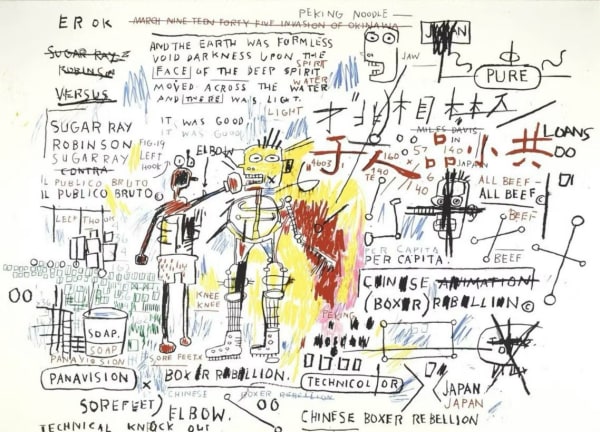 EROK
PEKING NOODLE —
MARCH NINE TEEN FORTY FIVE INVASION OF OKINAWA
SUGAR RAY
ROBINSON
VERSUS
AND THE EARTH WAS FORMLESS
VOID DARKNESS UPON THE
SPIRIT
FACE OF THE DEEP SPIRIT
WATER
MOVED ACROSS THE WATER
AND THERE WAS LIGHT.
LIGHT
IT WAS GOOD
IT WAS GOOD
JAW
PURE
SUGAR RAY
ROBINSON
SUGAR RAY
CONTRA
IL PUBLICO BRUTO
IL PUBLICO BRUTO©
FIG.19
LEFT
HOOK
ELBOW
"4603
MILES DAVIS
IN
JAPAN
140
57
140
160
140
40
6
于人品小共
LOANS
OO
ALL BEEF—
ALL BEEF©
BEEF
BEEF
PER CAPITA
PER CAPITA.
LELF THO
OO
SOAP.
SOAP
KNEE
KNEE
CHINESE ANIMATION
(BOXER) REBELLION©
PEKING
MOSKOW
PANAVISION
PANAVISION
SORE FEET X
X
BOXER REBELLION.
CHINESE BOXER REBELLION
TECHNICOLOR
JAPAN
JAPAN
SOREFEET)
ELBOW.
OO
CHINESE BOXER REBELLION
TECHNICAL KNOCK OUT